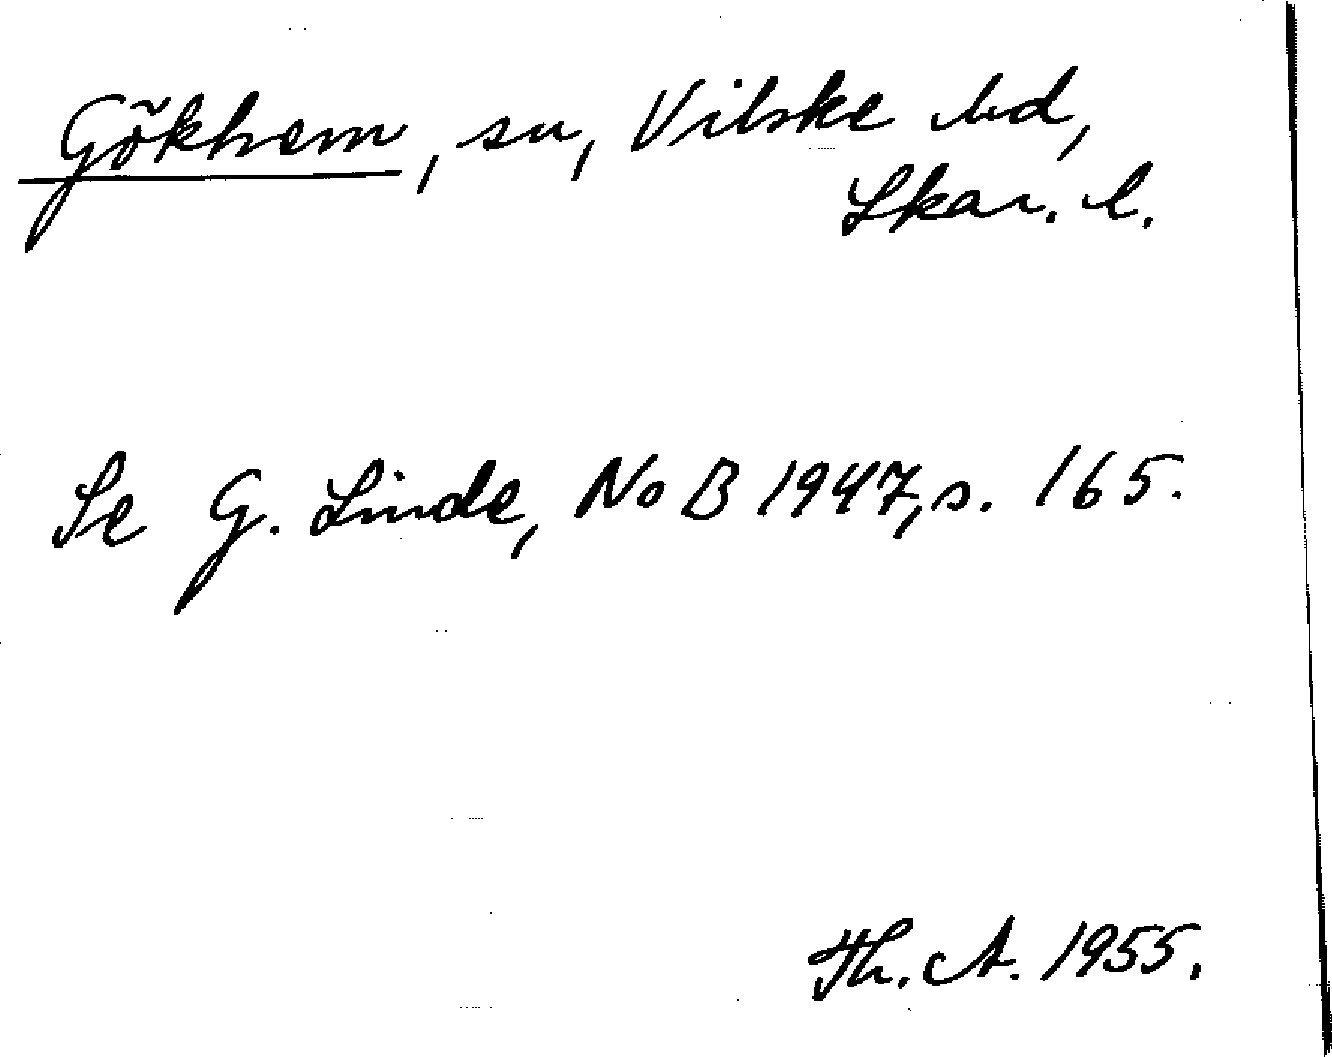 Gökhem, sn, Vilske hd,
Skar. l.
Se G. Linde, NoB 1947, s. 165.
Th. A. 1955.